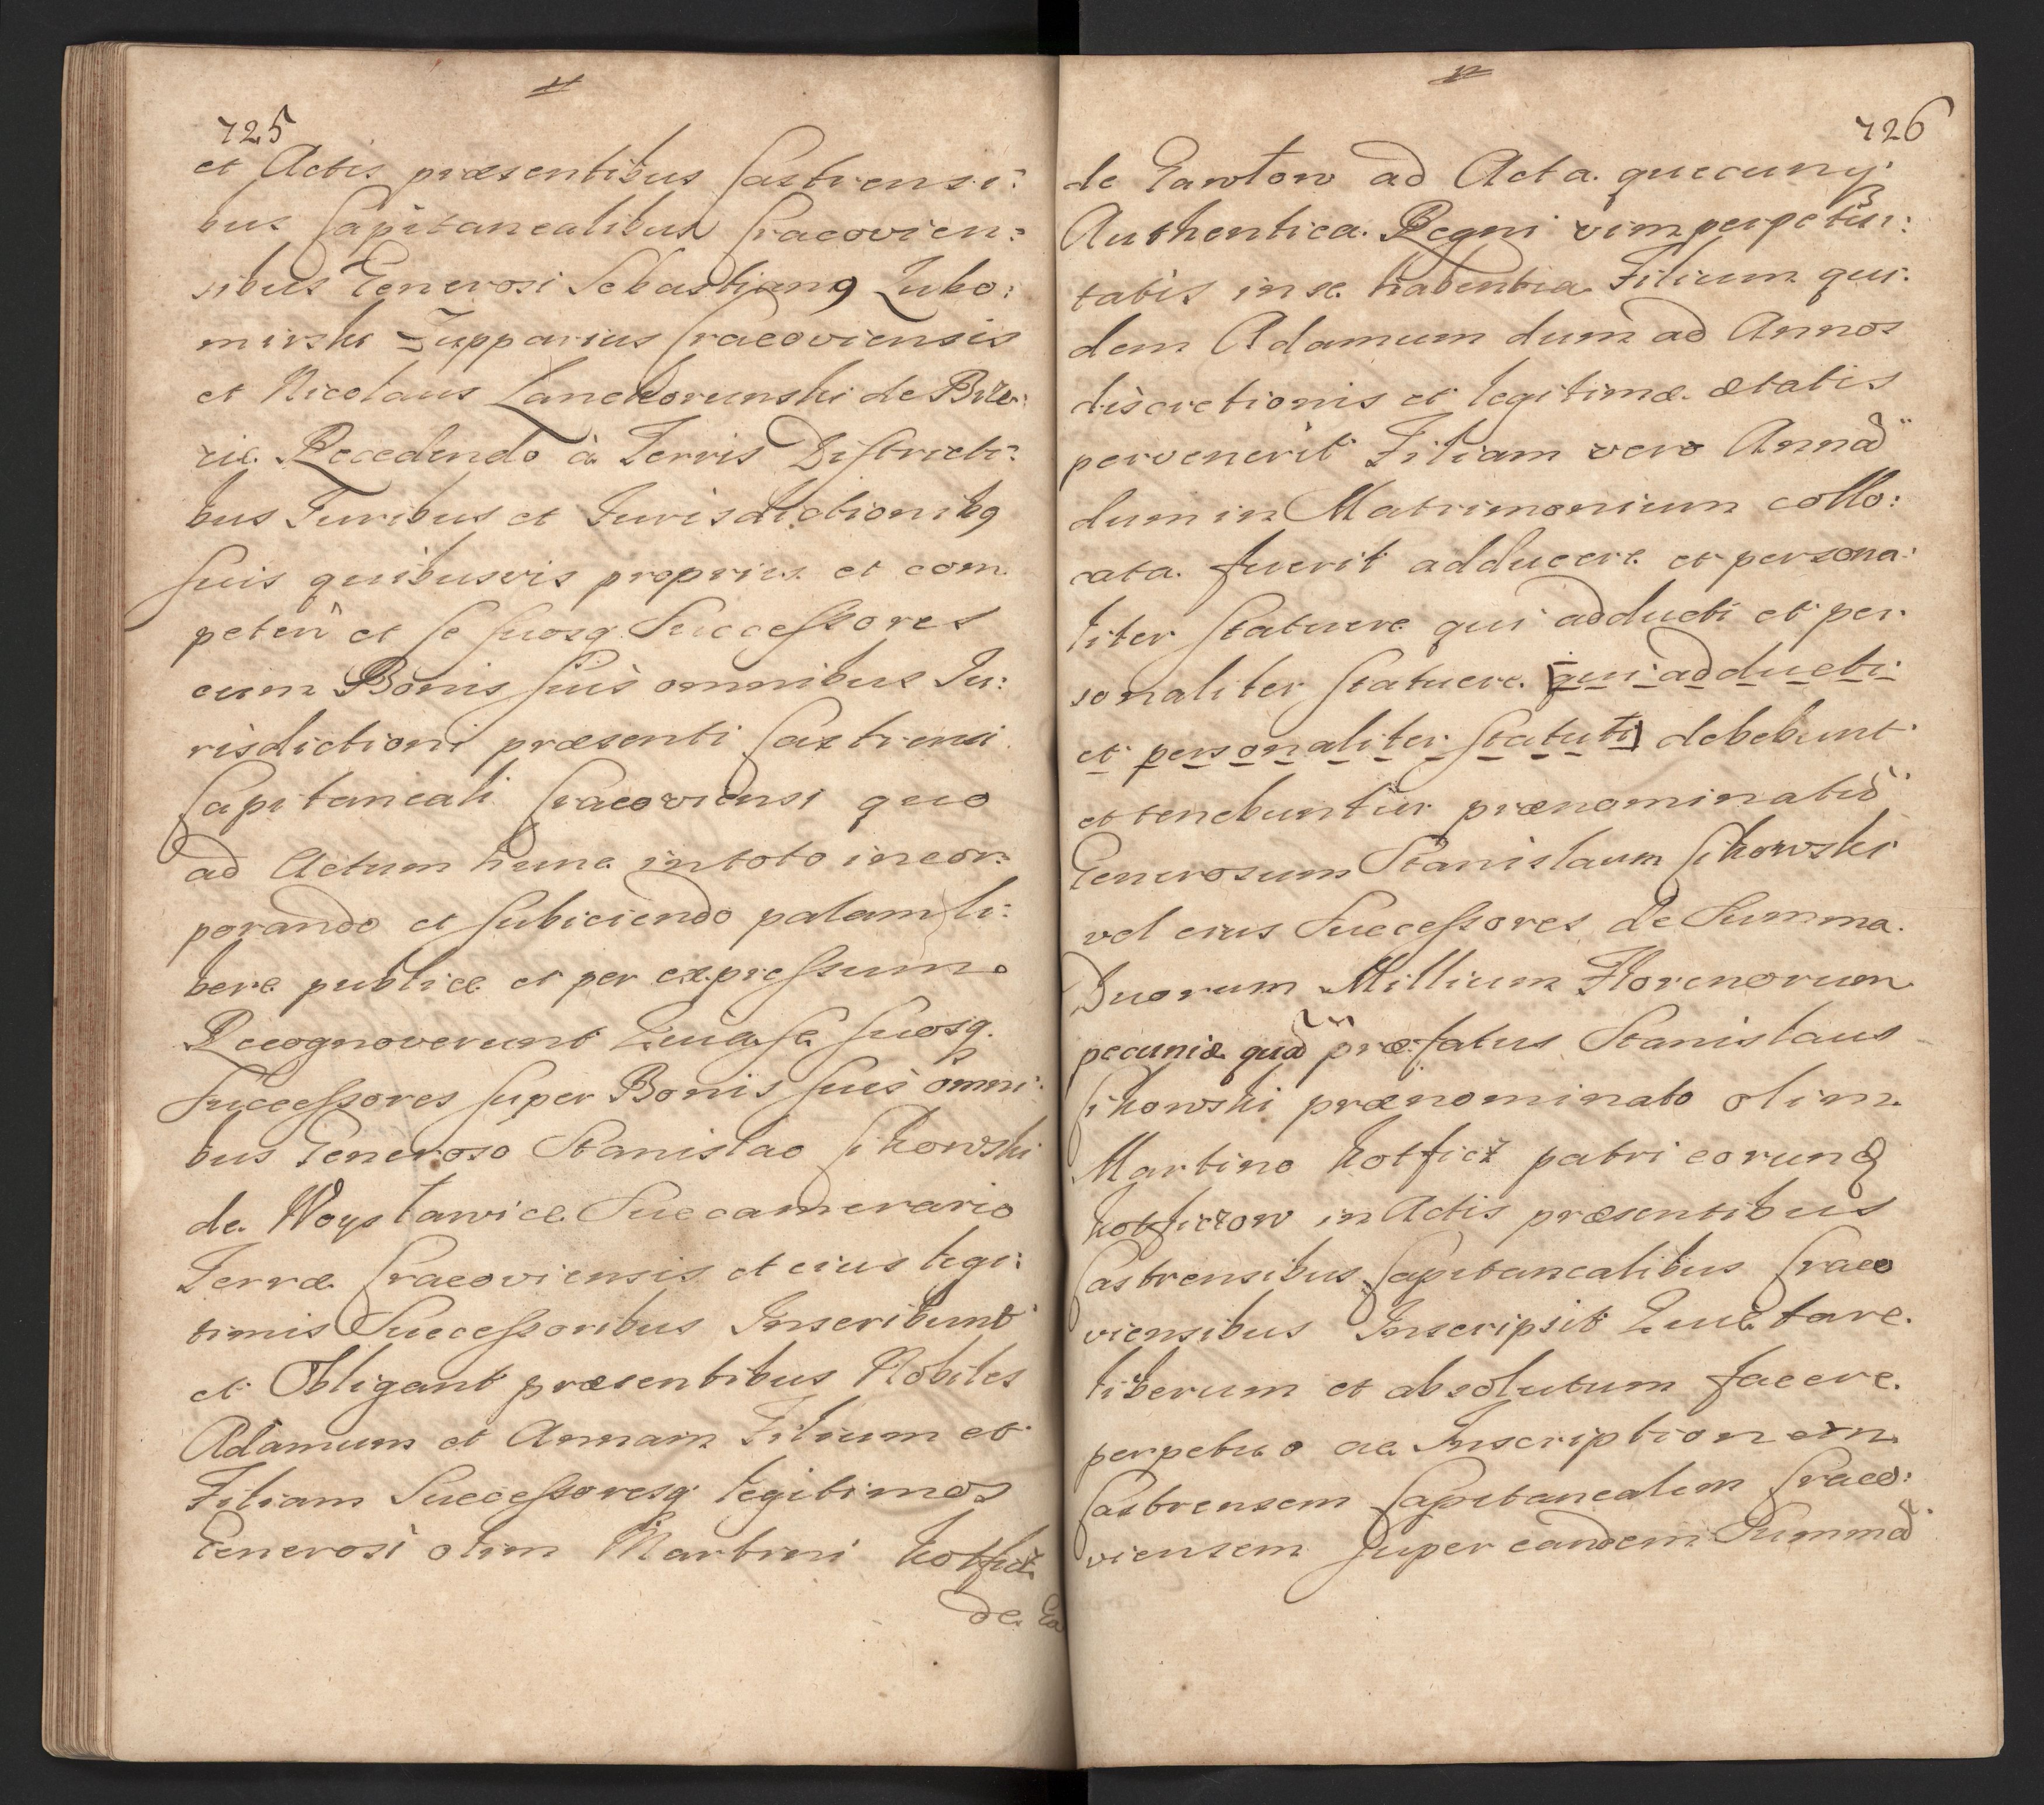 725
et Actis præsentibus Castrensi:
bus Capitanealibus Cracovien:
sibus Generosi Sebastjang Lubo:
mirski Zupparius Cracoviensis
et Nicolaus Lanckorunski de Brze:
zie Recedendo à Terris Districti:
bus Juribus et Jurisdictionibg
suis quibusvis propriis et com
peten et se suosq Successores
cum Bonis suis omnibus Ju:
risdictioni præsenti Castrensi
Capitaneali Cracoviensi quo
ad Actum hunc in toto incor:
porando et subiciendo palam li:
bere publice et per expressum
Recognoverunt Quia se suosq.
Successores super Bonis suis omni:
bus Generoso Stanislao Cikowski
de Woysławice Succamerario
Terræ Cracoviensis et eius legi:
timis Successoribus Inscribunt
et Obligant præsentibus Nobiles
Adamum et Annam Filium et
Filiam Successoresq legitimos
Generosi olim Martini Kotficz
de Ga
726
de Gawłow ad Acta quæcunq
Authentica Regni vim perpetui:
tatis in se habentia Filium qui:
dem Adamum dum ad Annos
discretionis et legitimæ ætatis
pervenerit Filiam vero Annã
dum in Matrimonium collo:
cata fuerit adducere et persona:
liter statuere qui adducti et per:
sonaliter statuere [qui adducti
et personaliter statuti] debebunt
et tenebuntur prænominatũ
Generosum Stanislaum Cikowski
vel eius Successores de Summa
Duorum Millium Florenorum
pecuniæ quã præfatus Stanislaus
Cikowski prænominato olim
Martino Kotficz patri eorunđ
Kotficzow in Actis præsentibus
Castrensibus Capitanealibus Craco
viensibus Inscripsit Quietare
liberum et absolutum facere
perpetuo ac Inscriptionem
Castrensem Capitanealem Craco:
viensem super eandem Summã